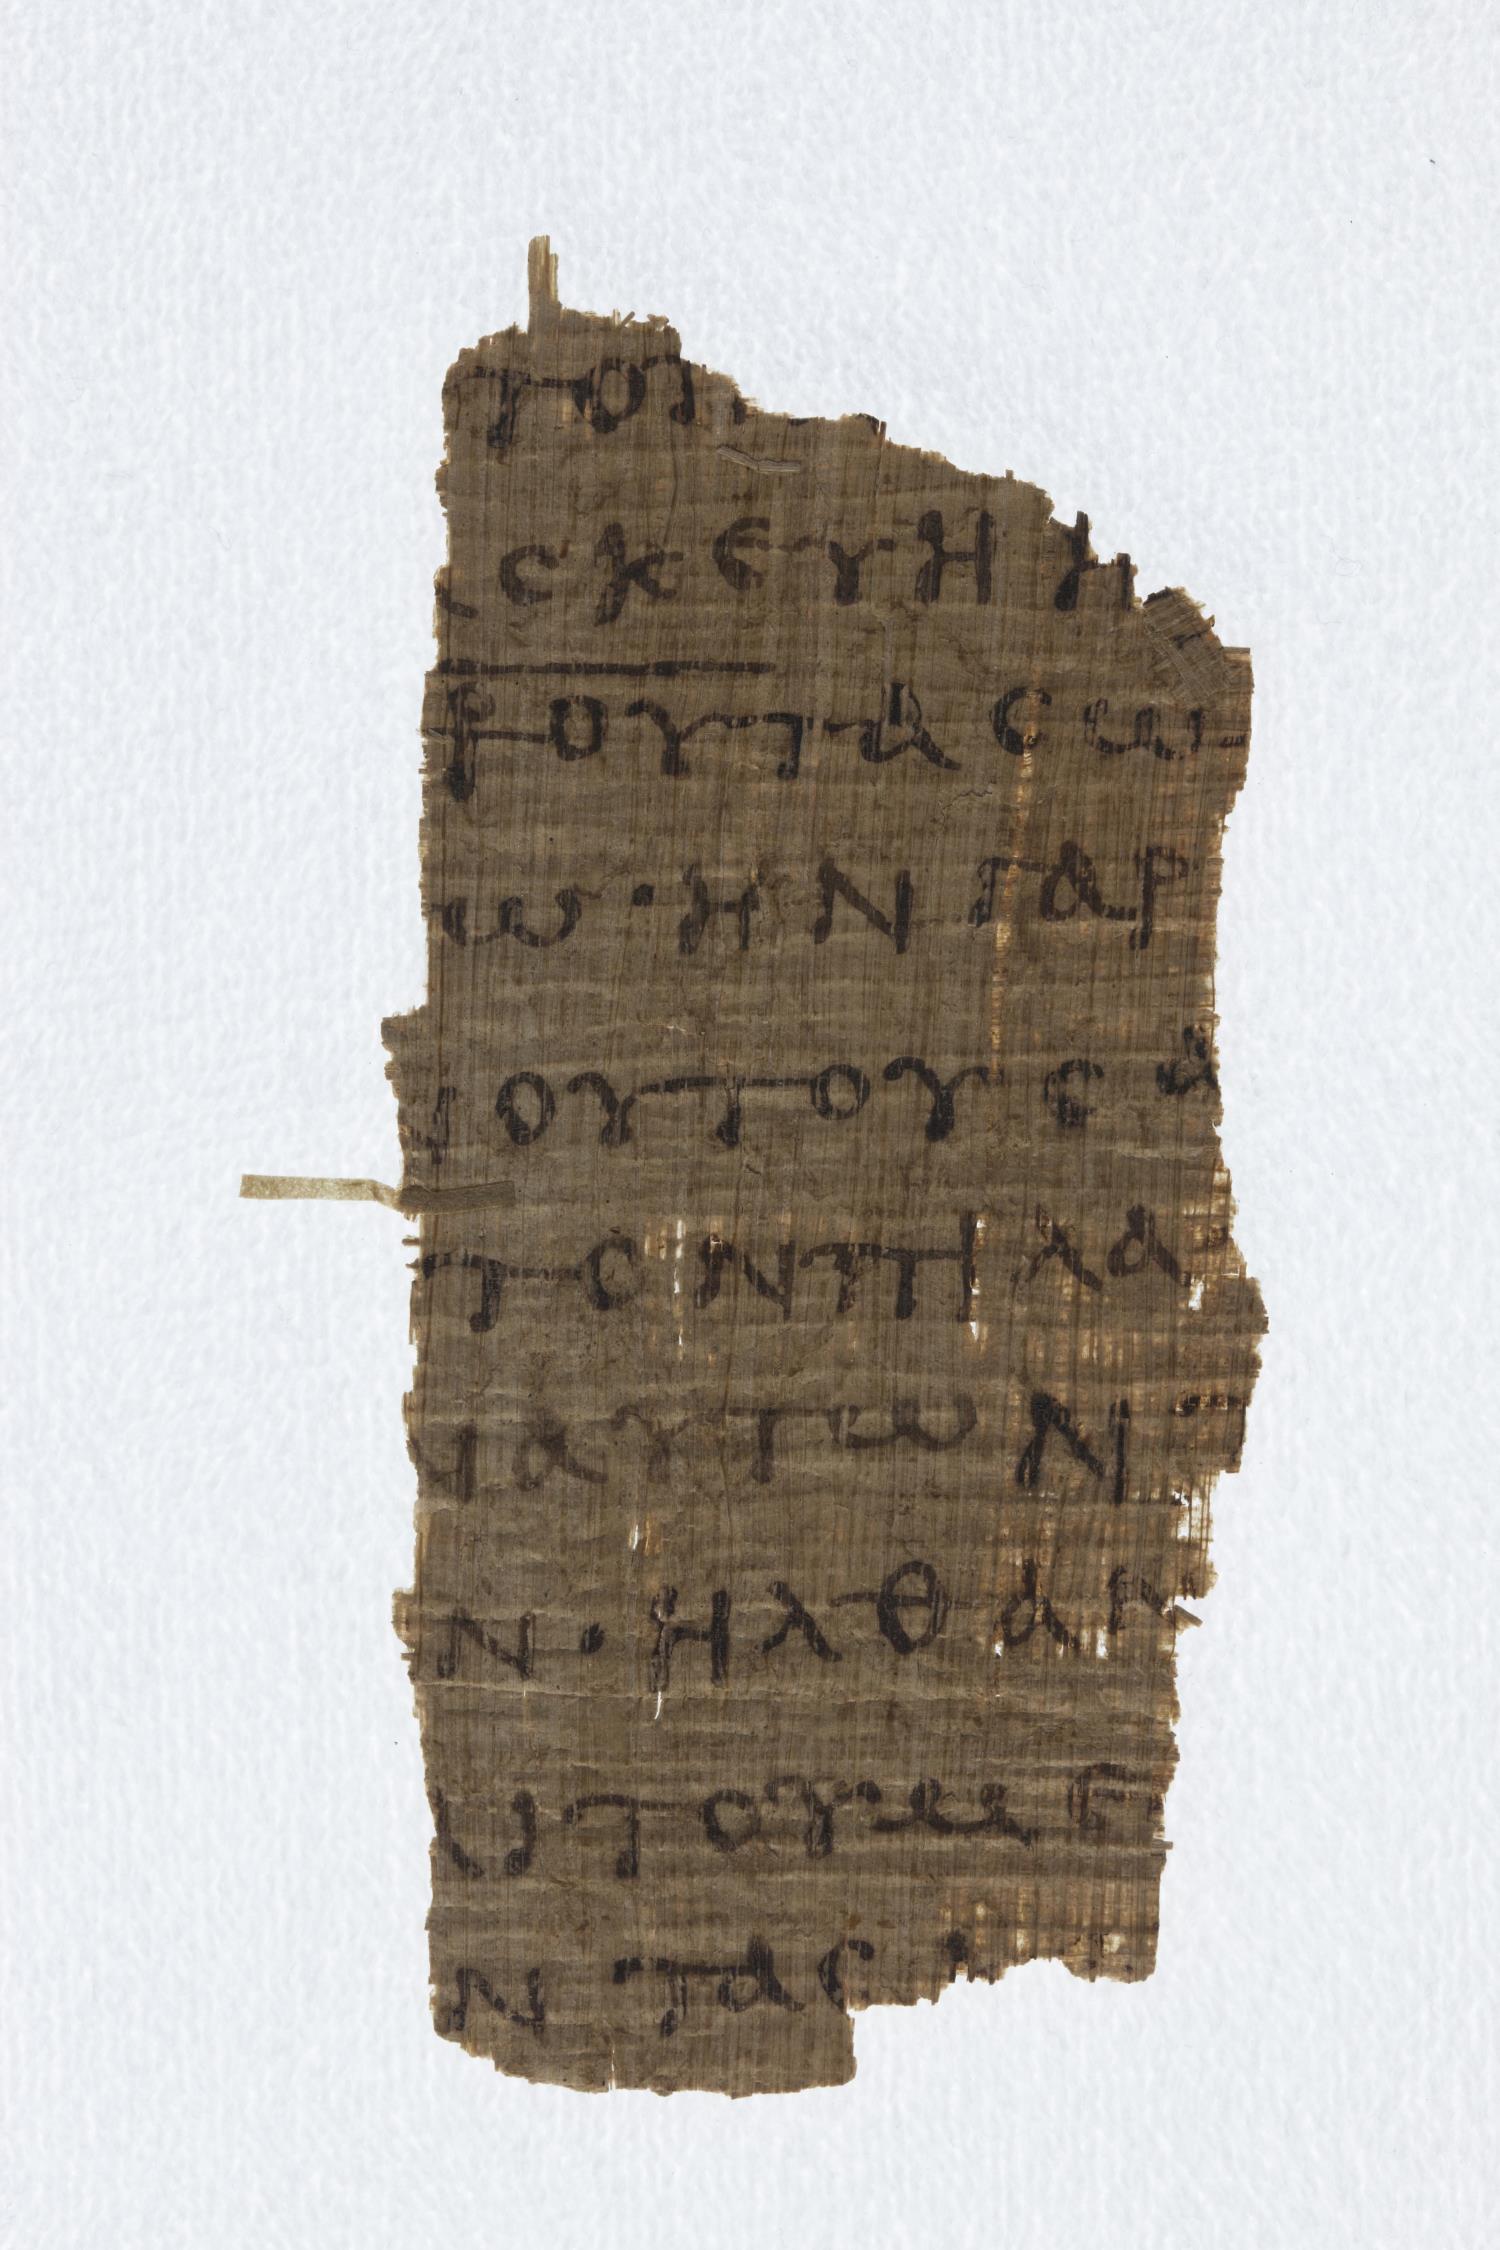 τον
σκευη η
ρουτασω
ω·ην γαρ
ουτους α
τονπλα
ιαυτων
ν·ηλθαν
υτουμε
ν τας